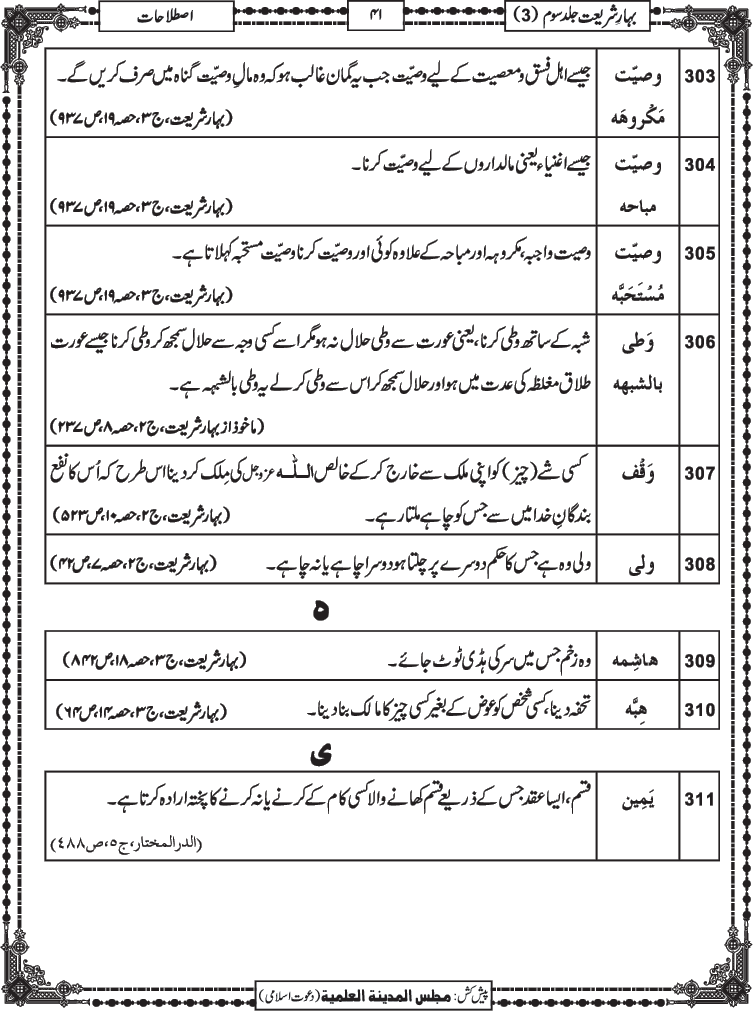 بہارِ شریعت جلد سوم (3)
۴۱
اصطلاحات
303 وصیّت جیسے اہل فسق و معصیت کے لیے وصیّت جب یہ گمان غالب ہو کہ وہ مالِ وصیّت گناہ میں صرف کریں گے۔
مَکْروهَه (بہارِ شریعت، ج۳، حصہ ۱۹، ص۹۳۷)
304 وصیّت جیسے اغنیاء یعنی مالداروں کے لیے وصیّت کرنا۔
مباحه (بہارِ شریعت، ج۳، حصہ ۱۹، ص۹۳۷)
305 وصیّت وصیت واجبہ، مکروہہ اور مباحہ کے علاوہ کوئی اور وصیّت کرنا وصیّت مستحبہ کہلاتا ہے۔
مُسْتَحَبَّه (بہارِ شریعت، ج۳، حصہ ۱۹، ص۹۳۷)
306 وَطی شبہ کے ساتھ وطی کرنا، یعنی عورت سے وطی حلال نہ ہو مگر اسے کسی وجہ سے حلال سمجھ کر وطی کرنا جیسے عورت
بالشبهه طلاق مغلظہ کی عدت میں ہو اور حلال سمجھ کر اس سے وطی کرلے یہ وطی بالشبہہ ہے۔
(ماخوذ از بہار شریعت، ج۲، حصہ ۸، ص۲۳۷)
307 وَقْف کسی شے (چیز) کو اپنی ملک سے خارج کرکے خالص اللّٰه عزوجل کی مِلک کر دینا اس طرح کہ اُس کا نفع
بندگانِ خدا میں سے جس کو چاہے ملتا رہے۔ (بہار شریعت، ج۲، حصہ ۱۰، ص۵۲۳)
308 ولی ولی وہ ہے جس کا حکم دوسرے پر چلتا ہو دوسرا چاہے یا نہ چاہے۔ (بہار شریعت، ج۲، حصہ ۷، ص۴۲)
ہ
309 هاشِمه وہ زخم جس میں سر کی ہڈی ٹوٹ جائے۔ (بہار شریعت، ج۳، حصہ ۱۸، ص۸۴۲)
310 هِبَّه تحفہ دینا، کسی شخص کو عوض کے بغیر کسی چیز کا مالک بنا دینا۔ (بہار شریعت، ج۳، حصہ ۱۴، ص۶۴)
ی
311 یَمِین قسم، ایسا عقد جس کے ذریعے قسم کھانے والا کسی کام کے کرنے یا نہ کرنے کا پختہ ارادہ کرتا ہے۔
(الدرالمختار، ج٥، ص٤٨٨)
پیش کش: مجلس المدینة العلمیة (دعوت اسلامی)